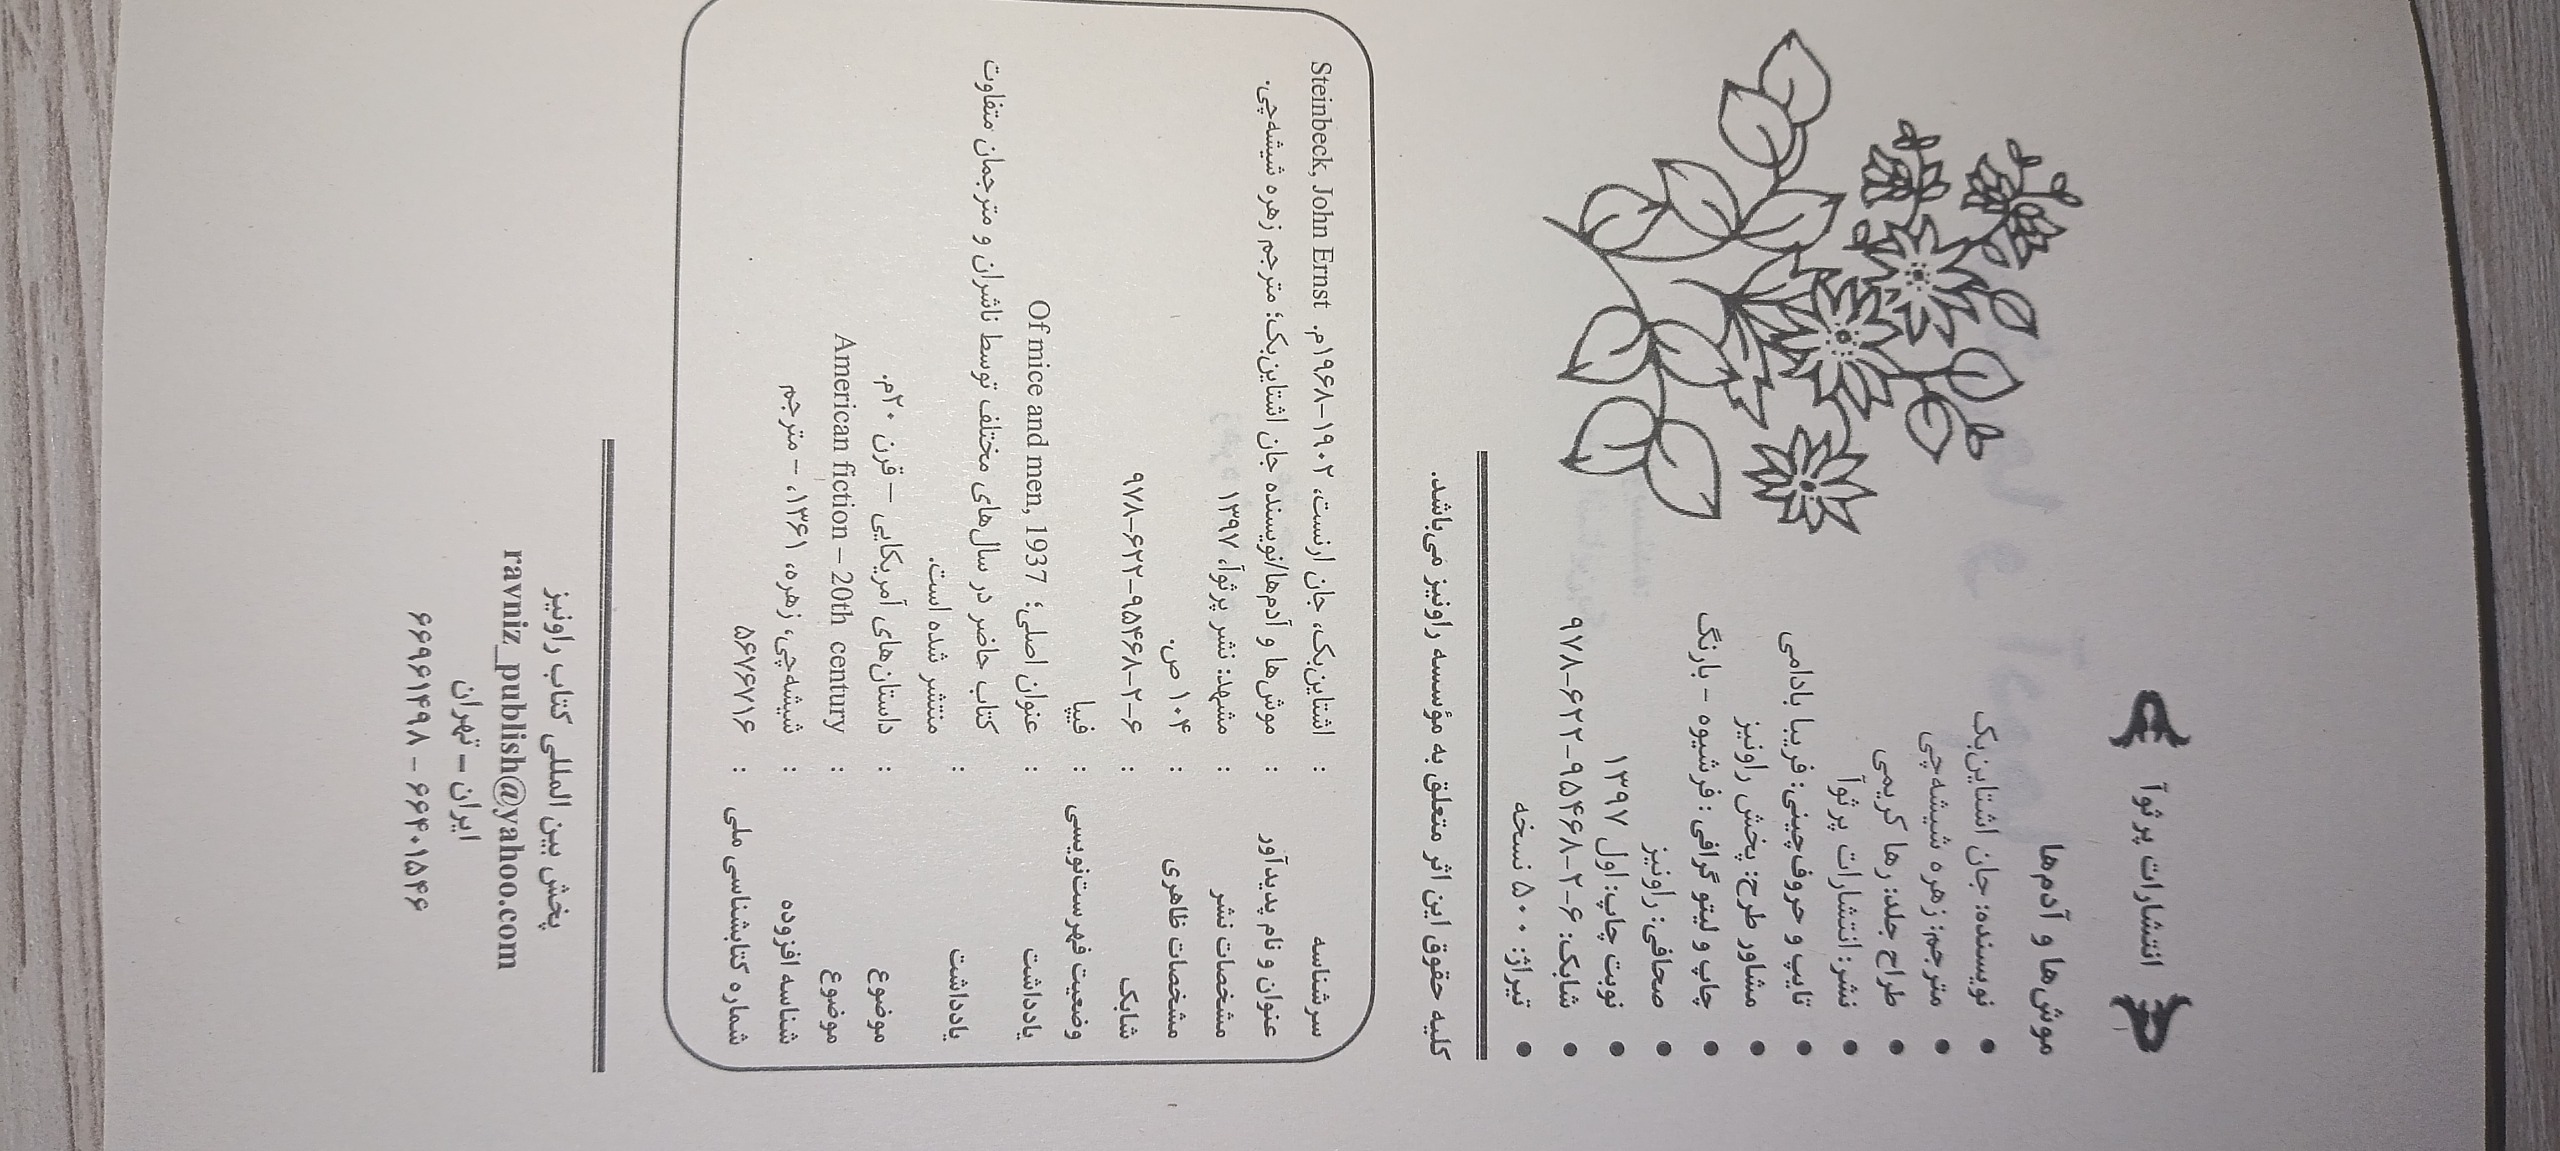 انتشارات پرثوآ
موش‌ها و آدم‌ها
● نویسنده: جان اشتاین‌بک
● مترجم: زهره شیشه‌چی
● طراح جلد: رها کریمی
● نشر: انتشارات پرثوآ
● تایپ و حروف‌چینی: فریبا بادامی
● مشاور طرح: پخش راونیز
● چاپ و لیتو گرافی: فرشیوه - بارنگ
● صحافی: راونیز
● نوبت چاپ: اول ۱۳۹۷
● شابک: ۶-۲-۹۵۴۶۸-۶۲۲-۹۷۸
● تیراژ: ۵۰۰ نسخه
کلیه حقوق این اثر متعلق به مؤسسه راونیز می‌باشد.
سرشناسه : اشتاین‌بک، جان ارنست، ۱۹۰۲-۱۹۶۸م. Steinbeck, John Ernst
عنوان و نام پدیدآور : موش‌ها و آدم‌ها/نویسنده جان اشتاین‌بک؛ مترجم زهره شیشه‌چی.
مشخصات نشر : مشهد: نشر پرثوآ، ۱۳۹۷
مشخصات ظاهری : ۱۰۴ ص.
شابک : ۹۷۸-۶۲۲-۹۵۴۶۸-۲-۶
وضعیت فهرست‌نویسی : فیپا
یادداشت : عنوان اصلی؛ Of mice and men, 1937
یادداشت : کتاب حاضر در سال‌های مختلف توسط ناشران و مترجمان متفاوت
منتشر شده است.
موضوع : داستان‌های آمریکایی – قرن ۲۰م.
موضوع : American fiction – 20th century
شناسه افزوده : شیشه‌چی، زهره، ۱۳۶۱، - مترجم
شماره کتابشناسی ملی : ۵۶۷۶۷۱۶
پخش بین المللی کتاب راونیز
ravniz_publish@yahoo.com
ایران – تهران
۶۶۹۶۱۴۹۸ – ۶۶۴۰۱۵۴۶